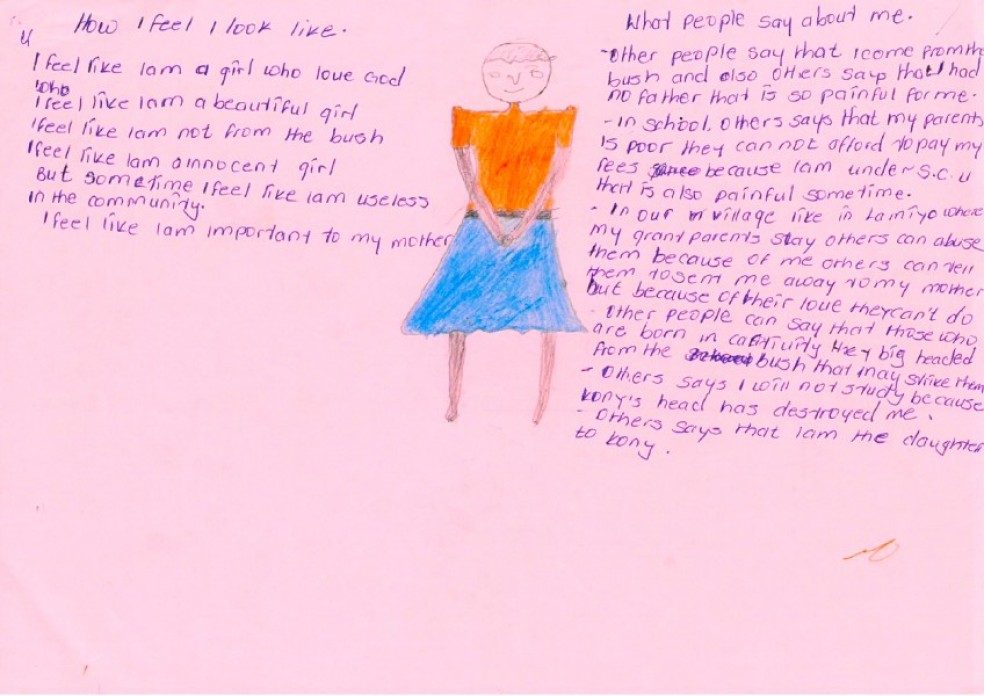 How I feel I look like.
I feel like Iam a girl who love God
who
I feel like Iam a beautiful girl
I feel like Iam not from the bush
I feel like Iam a innocent girl
But sometime I feel like Iam useless
in the community.
I feel like Iam important to my mother
What people say about me.
-Other people say that I come from the
bush and also others says that I had
no father that is so painful for me.
- In school, others says that my parents
is poor they can not afford to pay my
fees because Iam under S.C.U
that is also painful sometime.
- In our village like in Lamiyo where
my grant parents stay others can abuse
them because of me others can tell
them to sent me away to my mother
but because of their love they can't do
- Other people can say that those who
are born in captivity they big headed
from the bush that may strike them
- Others says I will not study because
kony's head has destroyed me.
- Others says that Iam the daughter
to kony.